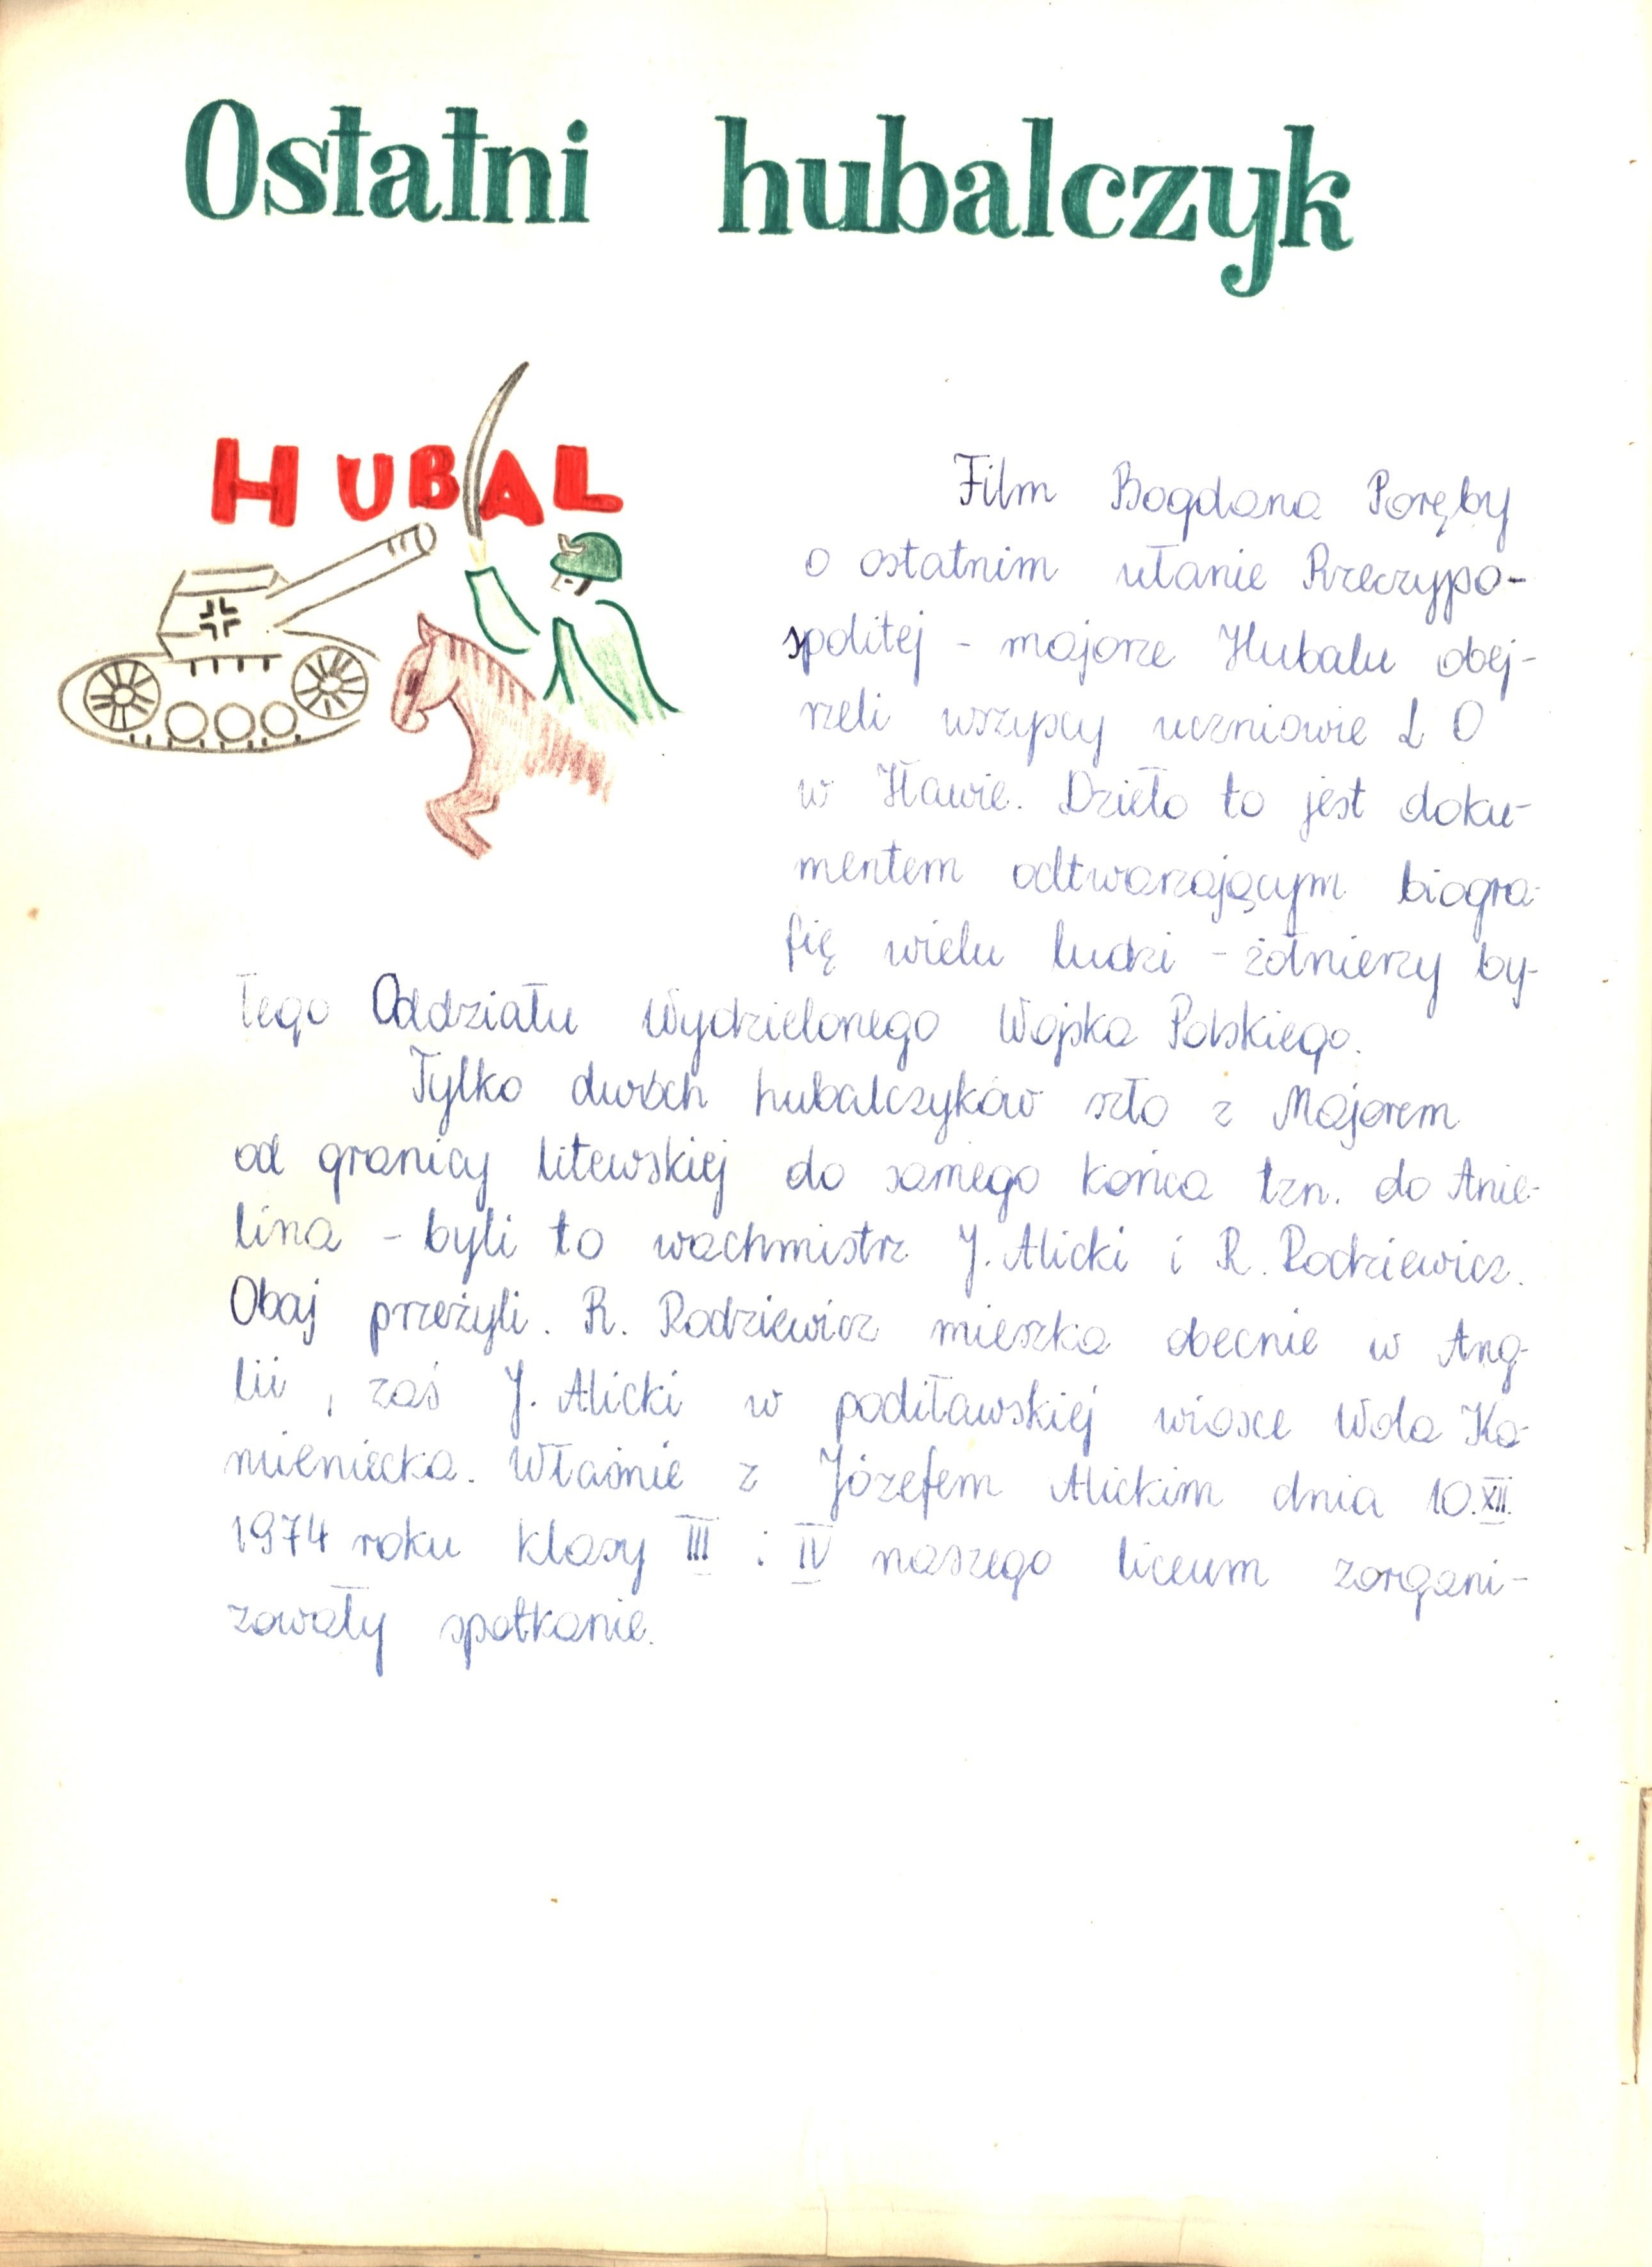 Ostatni hubalczyk
HUBAL
Film Bogdana Poręby
o ostatnim ułanie Rzeczypo-
spolitej - majorze Hubalu obej-
rzeli wszyscy uczniowie L O
w Iławie. Dzieło to jest doku-
mentem odtwarzającym biogra-
fię wielu ludzi - żołnierzy by-
łego Oddziału Wydzielonego Wojska Polskiego.
Tylko dwóch hubalczyków szło z Majorem
od granicy litewskiej do samego końca tzn. do Anie-
lina - byli to wachmistrz J. Alicki i R. Rodziewicz.
Obaj przeżyli. R. Rodziewicz mieszka obecnie w Ang-
lii, zaś J. Alicki w podiławskiej wiosce Wola Ka-
mieniecka. Właśnie z Józefem Alickim dnia 10.XII.
1974 roku klasy III i IV naszego liceum zorgani-
zowały spotkanie.